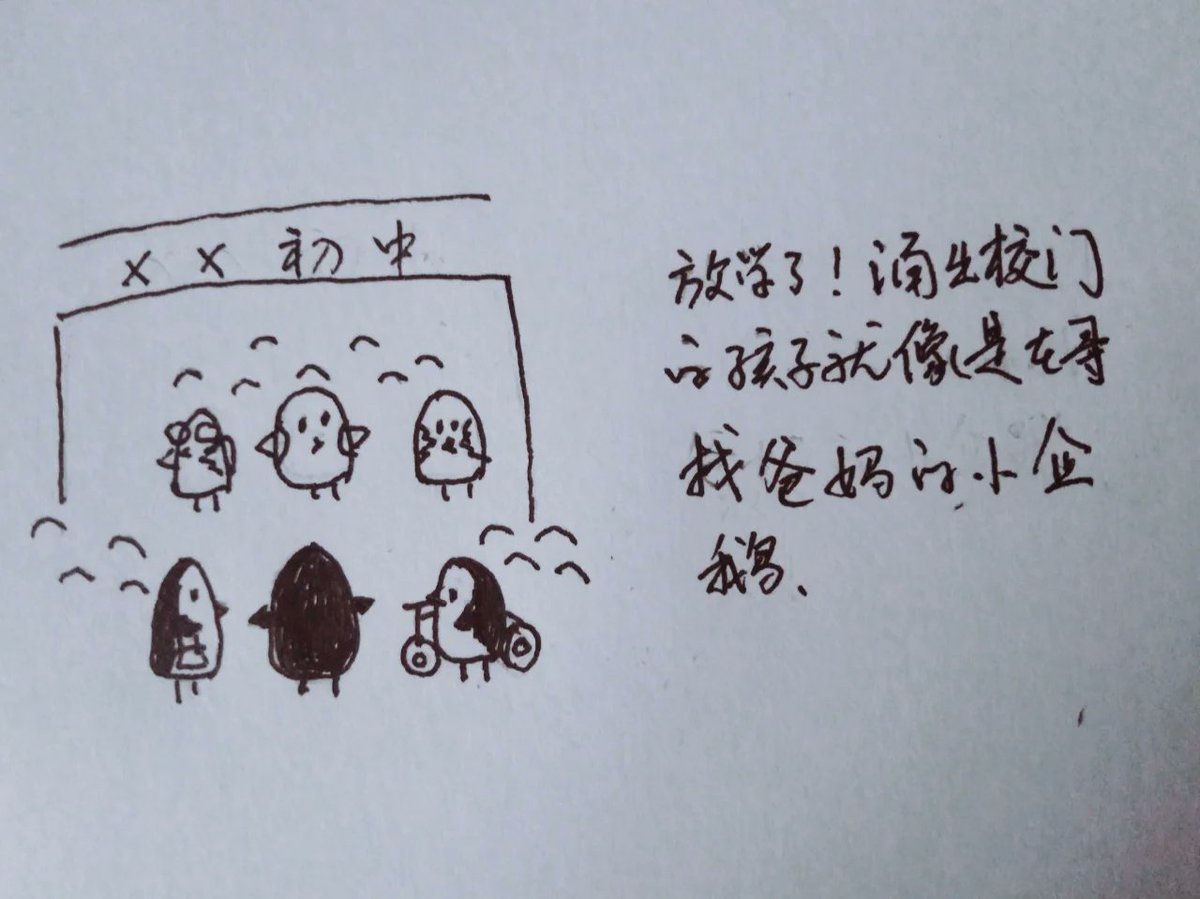 ×× 初中
放学了！涌出校门
的孩子就像是在寻
找爸妈的小企
鹅、